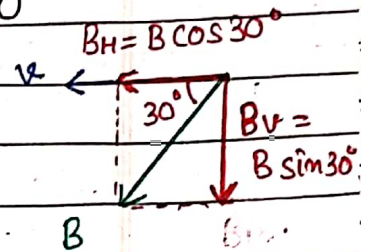 BH = B COS 30°
v
30°
Bv =
B sin 30°
B